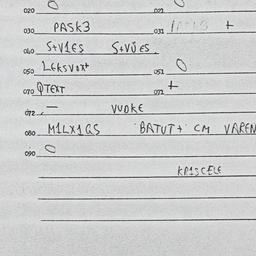 020 0 021
030 PASK3 031 +
040 S+V1ES S+VÚES
050 LEKSVOX+ 051 0
070 QTEXT 071 +
072 — VUOKE
080 M1LX1QS BATUT+ CM VAREN
090 0
KA1SCELE